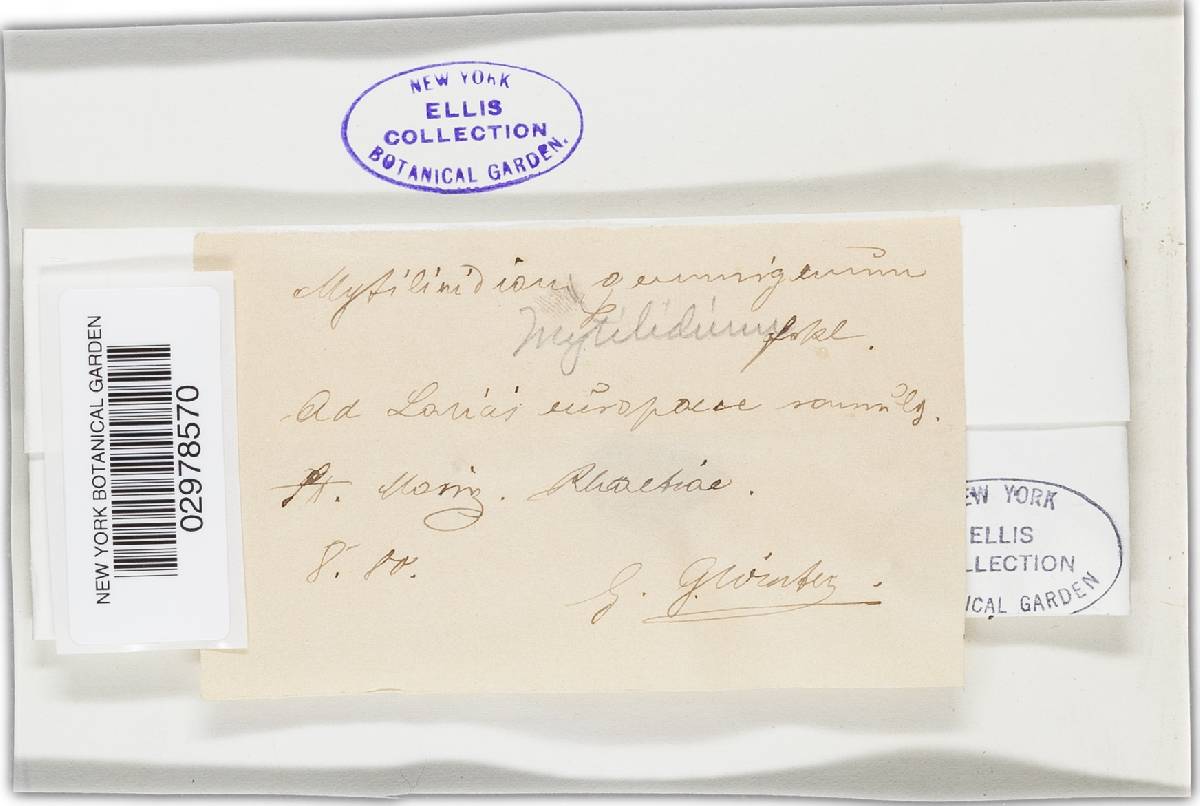 NEW YORK
ELLIS
COLLECTION
BOTANICAL GARDEN.
Mytilinidion gemmigenum
Mytilidium
fckl.
Ad Laricis europaeae ramulos.
St. Moriz. Rhaetiae.
8. 80.
G. Winter.
NEW YORK BOTANICAL GARDEN
02978570
EW YORK
ELLIS
LLECTION
ICAL GARDEN